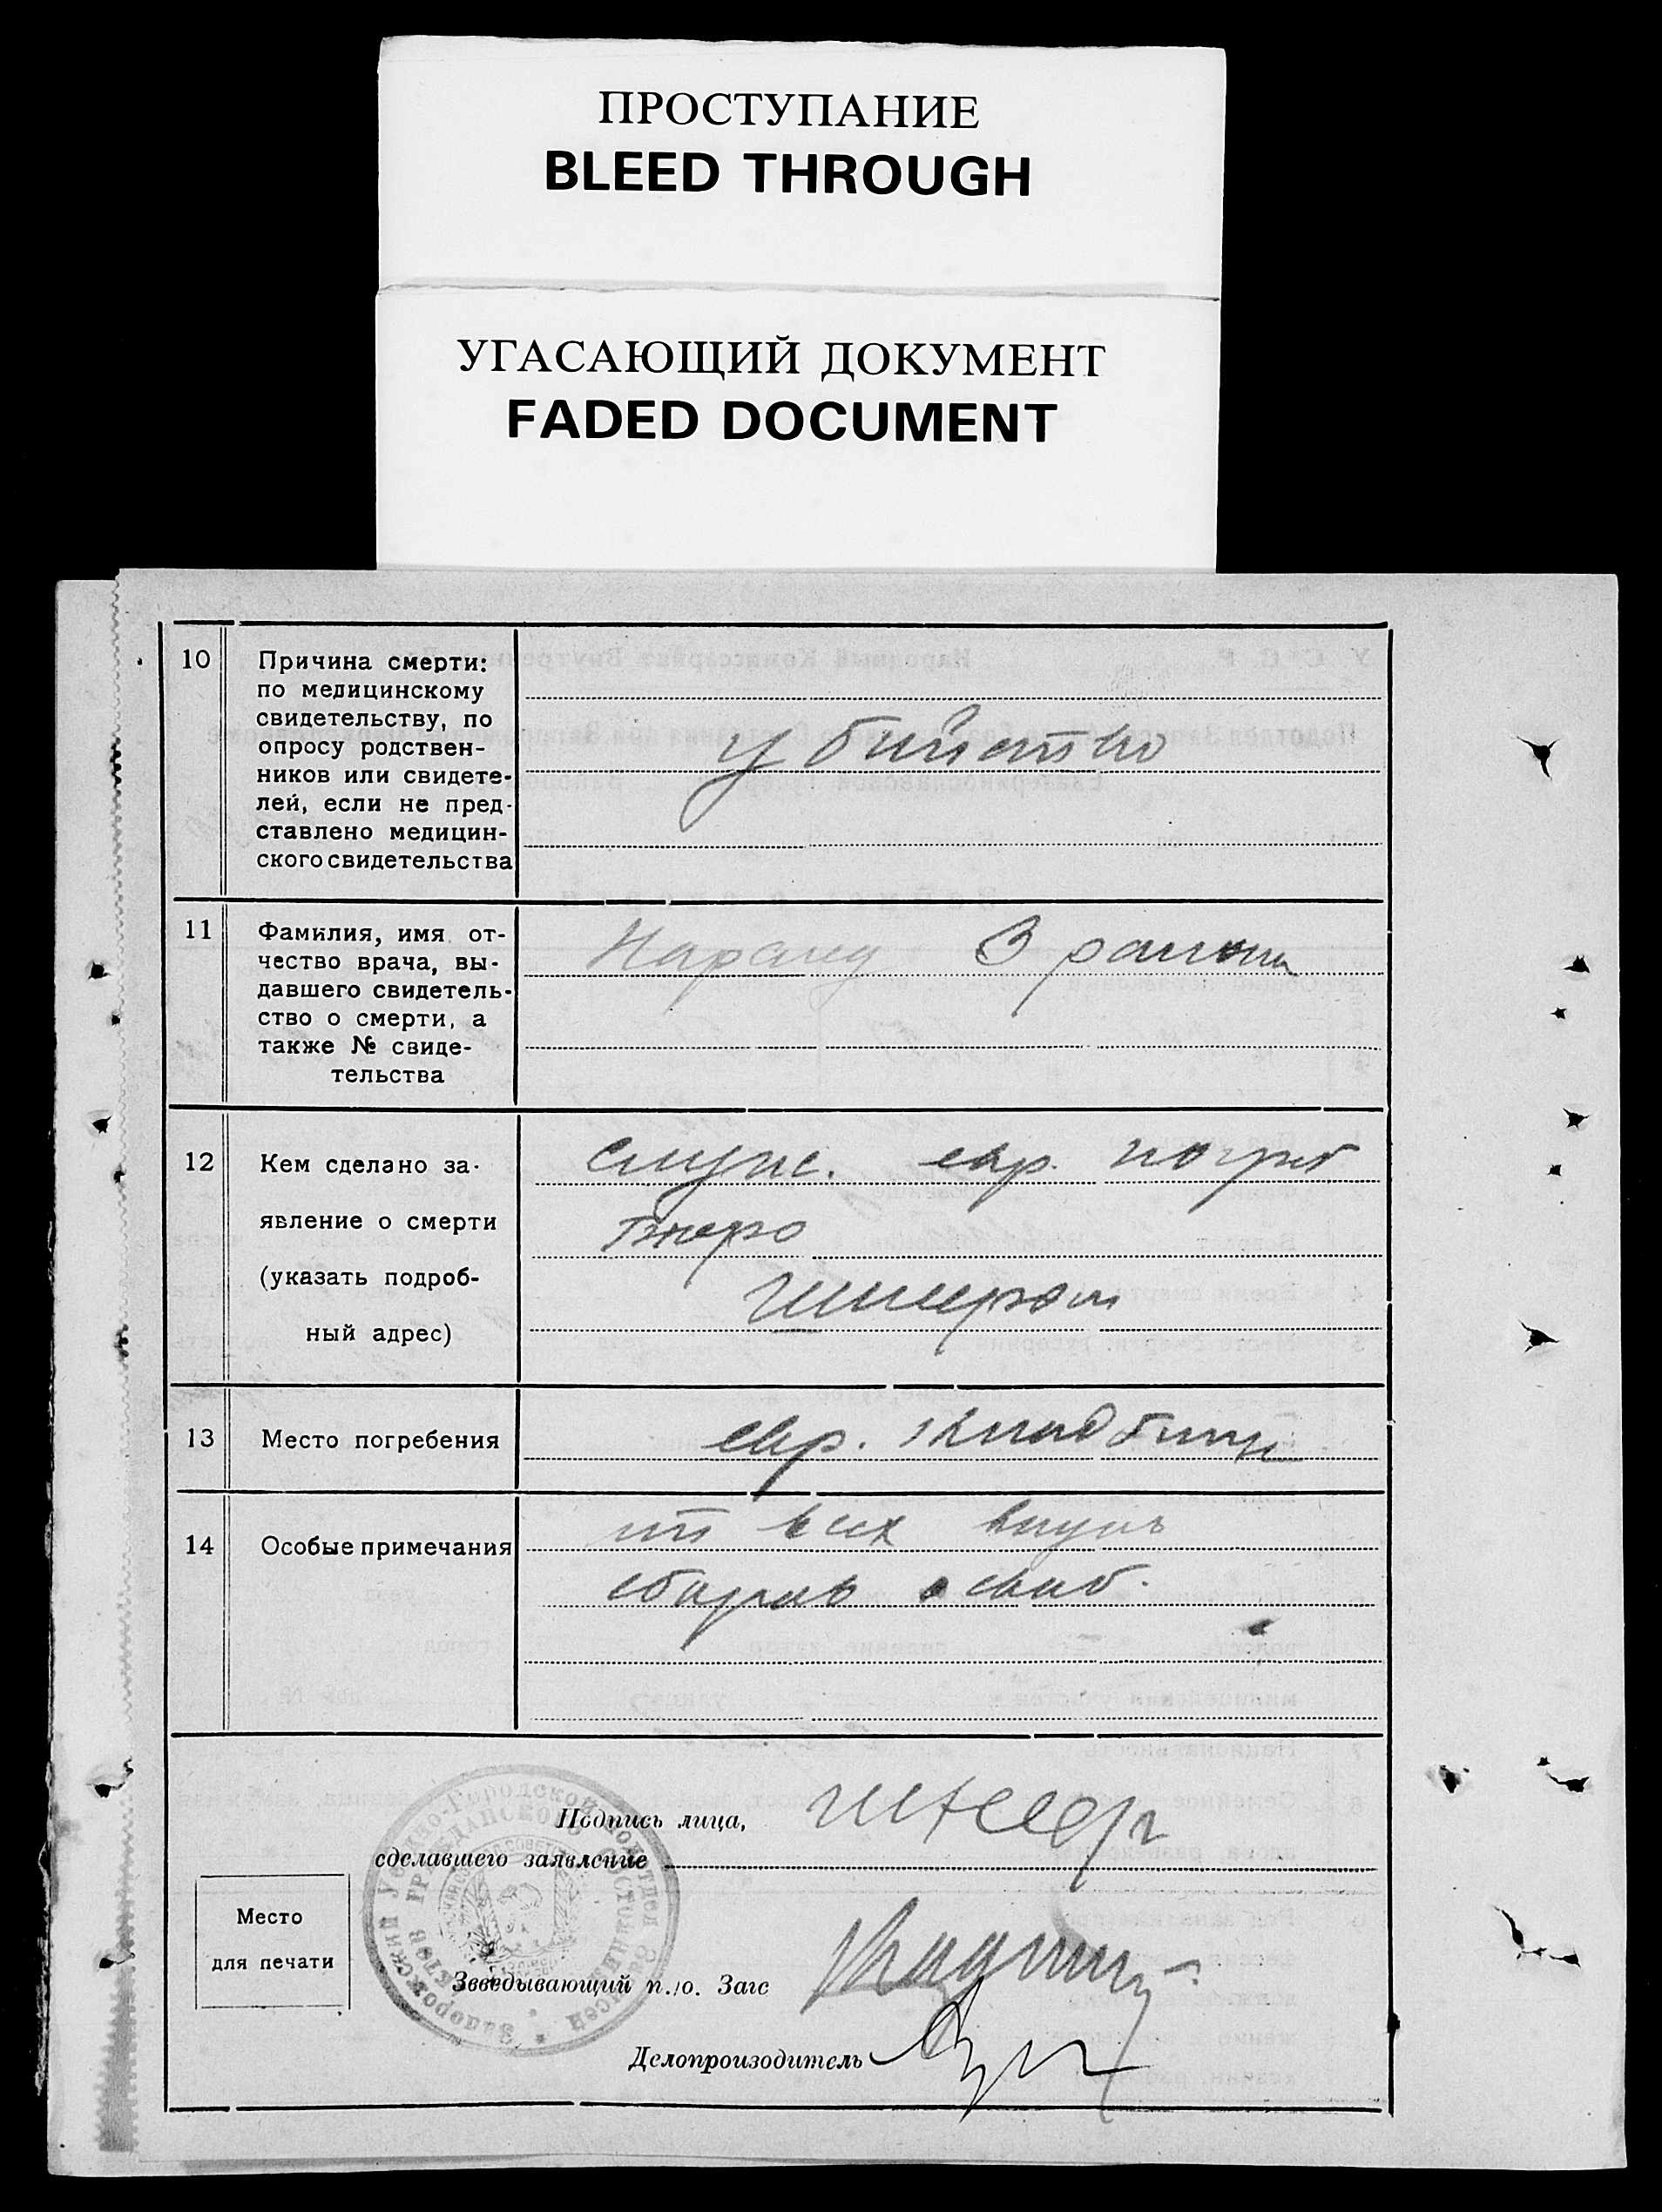 ПРОСТУПАНИЕ
BLEED THROUGH
УГАСАЮЩИЙ ДОКУМЕНТ
FADED DOCUMENT
10
Причина смерти:
по медицинскому
свидетельству, по
опросу родствен-
ников или свидете-
лей, если не пред-
ставлено медицин-
ского свидетельства
убийство
11
Фамилия, имя от-
чество врача, вы-
давшего свидетель-
ство о смерти, а
также № свиде-
тельства
3 района
12
Кем сделано за-
явление о смерти
(указать подроб-
ный адрес)
служ. евр. погреб
бюро
13
Место погребения
евр. кладбище
14
Особые примечания
от всех
сборов освоб.
Подпись лица,
сделавшего заявление
Место
для печати
Зеведывающий п./о. Загс
Делопроизодитель